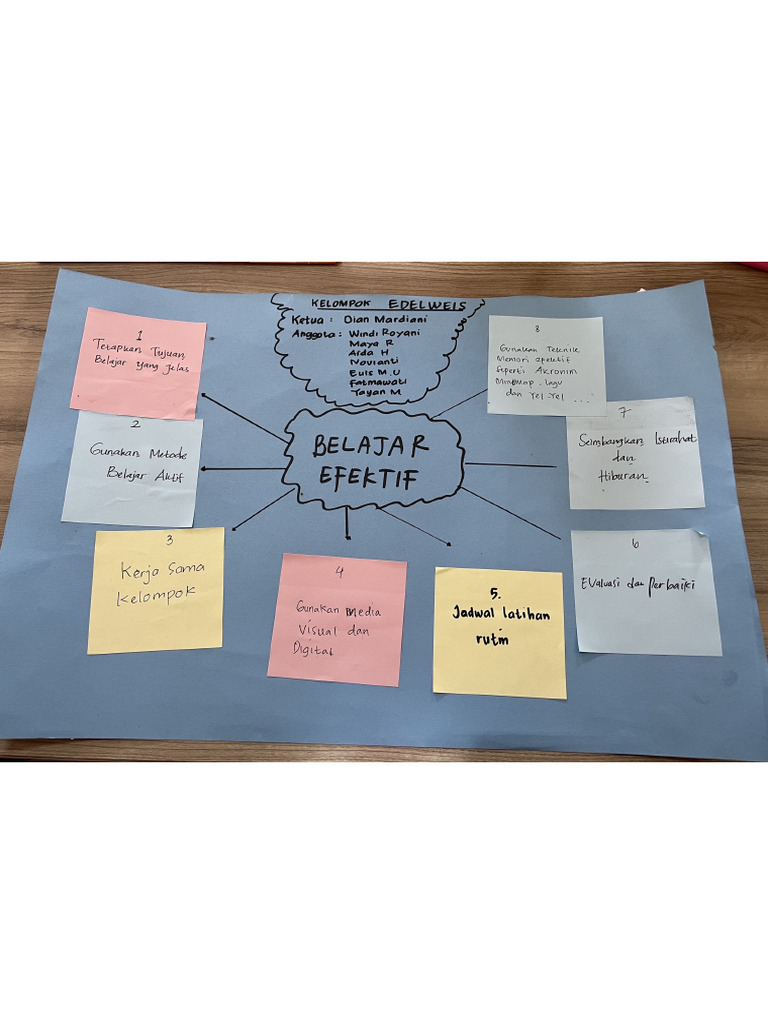 KELOMPOK EDELWEIS
Ketua : Dian Mardiani
Anggota : Windi Royani
Maya R
Arda H
Novianti
Euis M.U
Fatmawati
Yayan M
BELAJAR
EFEKTIF
1
Tetapkan Tujuan
Belajar yang Jelas
2
Gunakan Metode
Belajar Aktif
3
Kerja Sama
Kelompok
4
Gunakan Media
Visual dan
Digital
5.
Jadwal latihan
rutin
6
Evaluasi dan Perbaiki
7
Seimbangkan Istirahat
dan
Hiburan
8
Gunakan Teknik
Memori efektif
Seperti Akronim
Mindmap, lagu
dan Yel-Yel ...